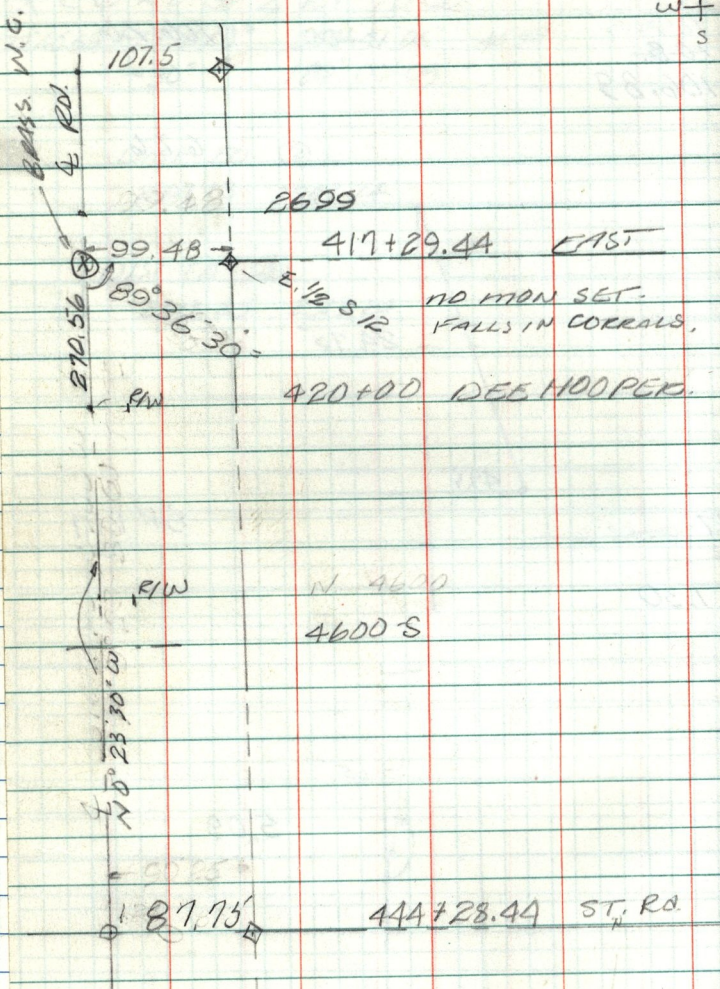 W
S
BRASS. W.C.
℄ RD.
107.5
2699
99.48
417+29.44 EAST
89° 36' 30"
E. 1/2 S 12
NO MON SET.
FALLS IN CORRALS.
270.56
R/W
420+00 DEE HOOPER.
R/W
N 4600
4600 S
℄ N 0° 23' 30" W
87.75
444+28.44 ST. RD